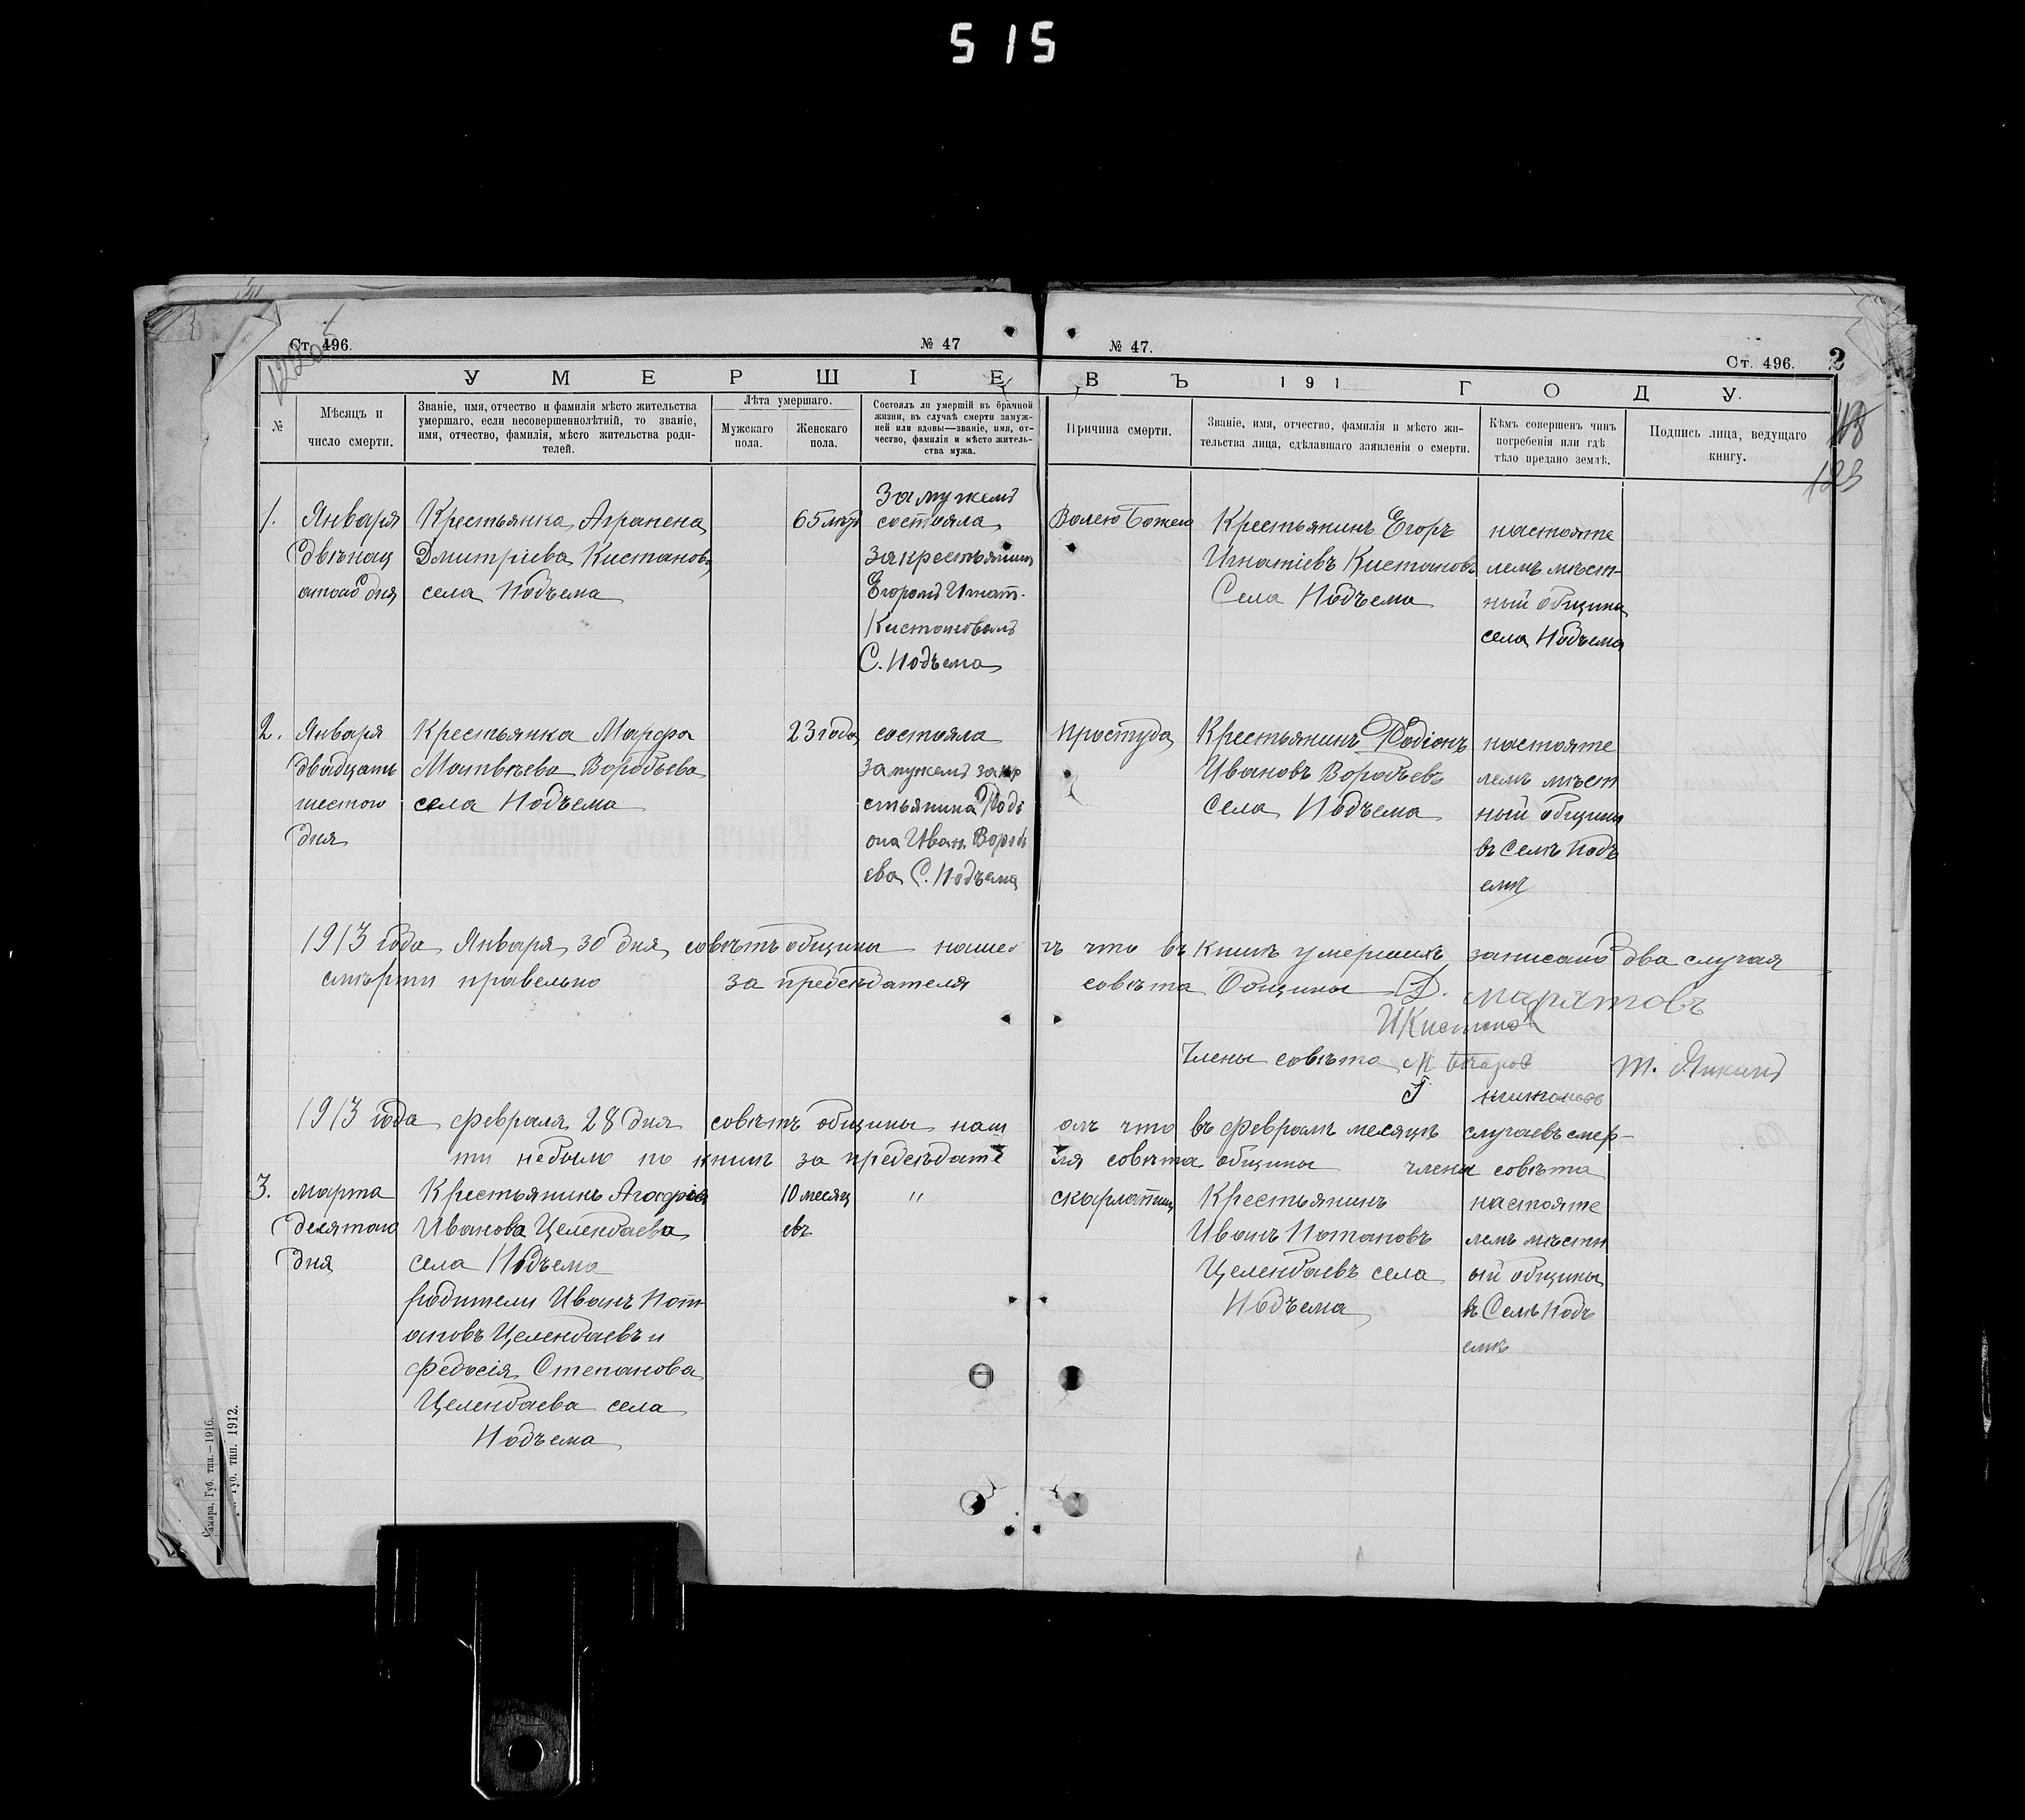 515
Ст. 496.
№ 47
№ 47.
Ст. 496.
2
УМЕРШІЕ ВЪ 191 ГОДУ.
№
Мѣсяцъ и
число смерти.
Званіе, имя, отчество и фамилія мѣсто жительства
умершаго, если несовершеннолѣтній, то званіе,
имя, отчество, фамилія, мѣсто жительства роди-
телей.
Лѣта умершаго.
Мужскаго
пола.
Женскаго
пола.
Состоялъ ли умершій въ брачной
жизни, въ случаѣ смерти замуж-
ней или вдовы—званіе, имя, от-
чество, фамилія и мѣсто житель-
ства мужа.
Причина смерти.
Званіе, имя, отчество, фамилія и мѣсто жи-
тельства лица, сдѣлавшаго заявленія о смерти.
Кѣмъ совершенъ чинъ
погребенія или гдѣ
тѣло предано землѣ.
Подпись лица, ведущаго
книгу.
123
1.
Января
двѣнац
атого дня
Крестьянка Аграпена
Дмитріева Кистанова
села Подъема
65 лѣтъ
Замужемъ
состояла
за крестьянин
Егоромъ Игнат.
Кистановымъ
С. Подъема
Волею Божею
Крестьянинъ Егоръ
Игнатіевъ Кистановъ
Села Подъема
настояте
лемъ мѣст-
ной общины
села Подъема
2.
Января
двадцать
шестого
дня
Крестьянка Марфа
Матвѣева Воробьева
села Подъема
23 года
состояла
замужемъ за кр
стьянина Роді
она Иван. Вороб
ева С. Подъема
простуда
Крестьянинъ Родіонъ
Ивановъ Воробьевъ
села Подъема
настояте
лемъ мѣст
ной общины
въ селѣ Подъ
емѣ
1913 года Января 30 дня совѣтъ общины нашелъ что въ книгѣ умершихъ записано два случая
смѣрти правельно за председателя совѣта Общины
Члены совѣта
1913 года февраля 28 дня совѣтъ общины нашолъ что въ февралѣ месяцѣ случаевъ смер-
ти небыло по книгѣ за председателя совѣта общины члены совѣта
3.
марта
девятого
дня
Крестьянинъ Агафія
Иванова Целендаева
села Подъема
родители Иванъ Пот
аповъ Целендаевъ и
Федосія Степанова
Целендаева села
Подъема
10 месяц
евъ
"
скарлатин
Крестьянинъ
Иванъ Потаповъ
Целендаевъ села
Подъема
настояте
лемъ мѣстн
ой общины
въ Селѣ Подъ
емѣ
Самара, Губ. тип.—1916.
Губ. тип. 1912.